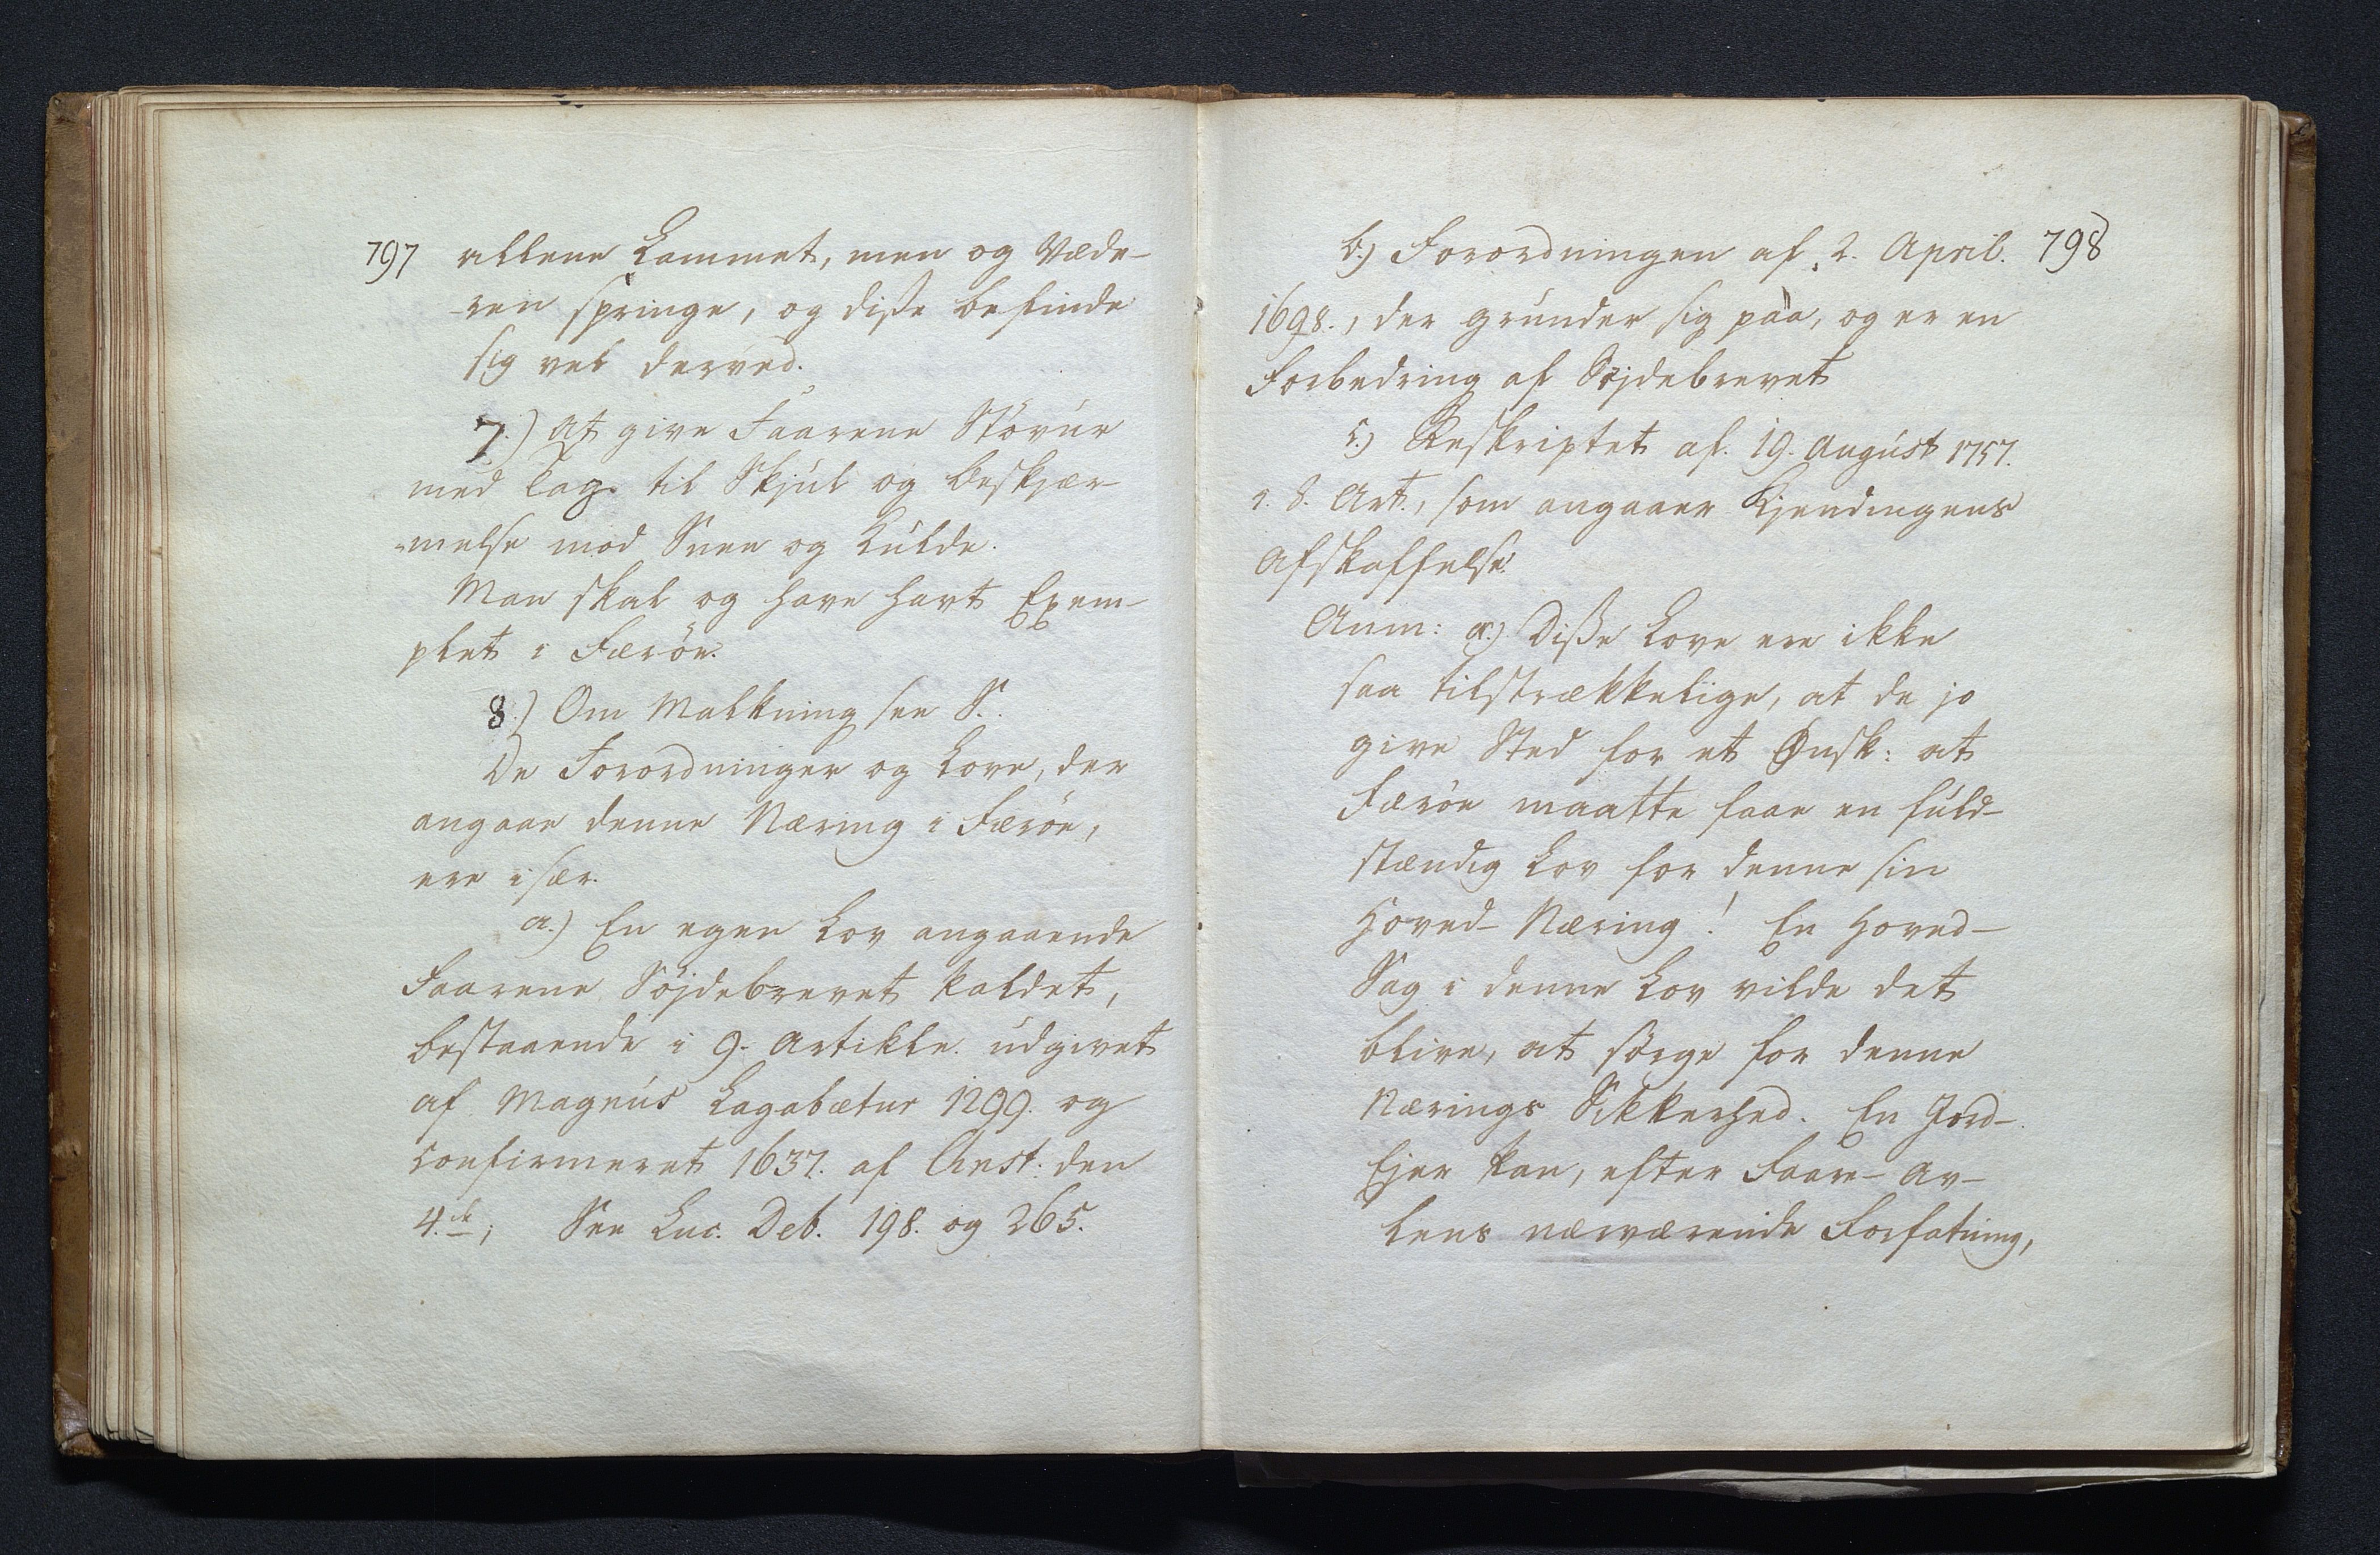 797
allene Lammet, men og Væde-
ren springe, og disse befinde
sig vel derved.
7.) At give Faarene Störur
med Tag til Skjul og Beskjær-
melse mod Snee og Kulde.
Man skal og have havt Exem-
plet i Færöe.
8.) Om Malkning see S.
De Forordninger og Love, der
angaae denne Næring i Færöe,
ere især.
a.) En egen Lov angaaende
Faarene Söjdebrevet kaldet,
bestaaende i 9. Artikle. udgivet
af Magnus Lagabætur 1299. og
confirmeret 1637. af Christ: den
4.de; See Luc. Deb. 198. og 265.
798
b.) Forordningen af 2. April.
1698., der grunder sig paa, og er en
Forbedring af Söjdebrevet
c.) Reskriptet af 19. August 1757.
i 8. Art., som angaaer Kjendingens
Afskaffelse.
Anm: a.) Disse Love ere ikke
saa tilstrækkelige, at de jo
give Sted for et Önsk: at
Færöe maatte faae en fuld-
stændig Lov for denne sin
Hoved-Næring! En Hoved-
Sag i denne Lov vilde det
blive, at sörge for denne
Nærings Sikkerhed. En Jord-
Ejer kan, efter Faare-Av-
lens nærværende Forfatning,